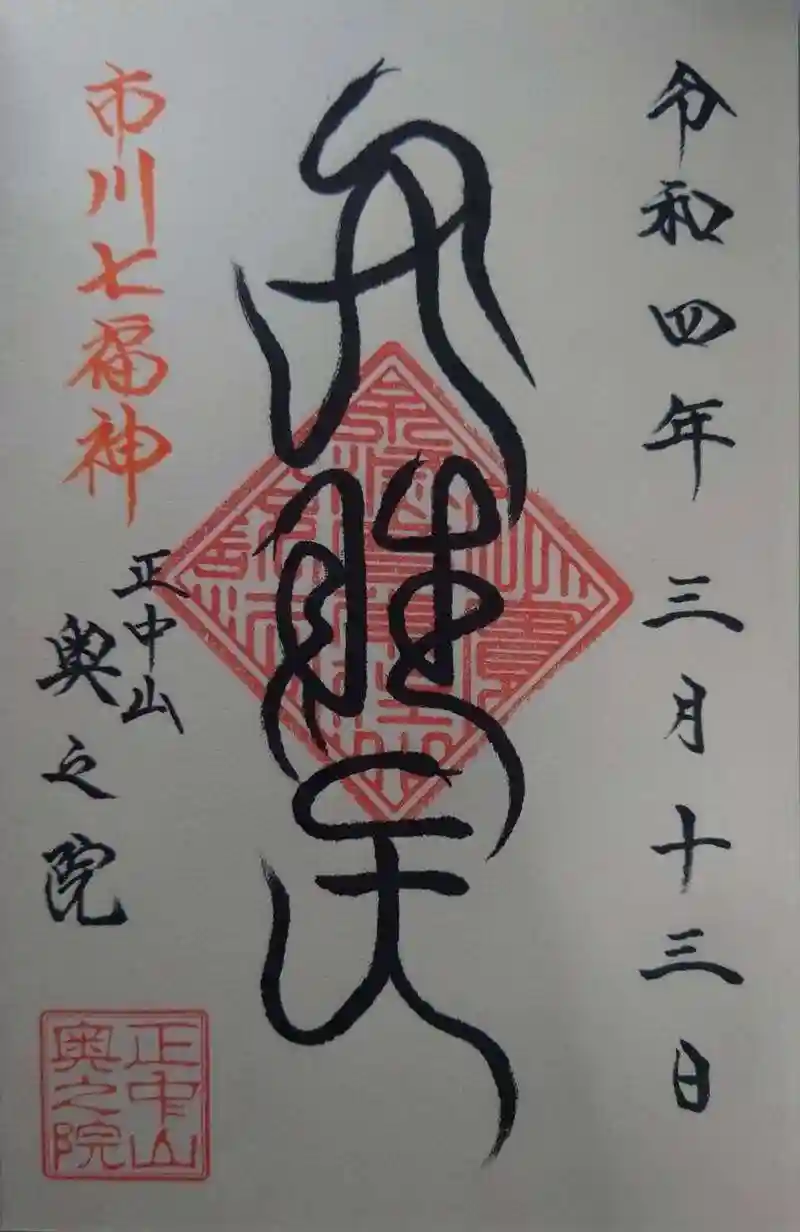 令和四年三月十三日
弁財天
市川七福神
正中山
奥之院
正中山
奥之院